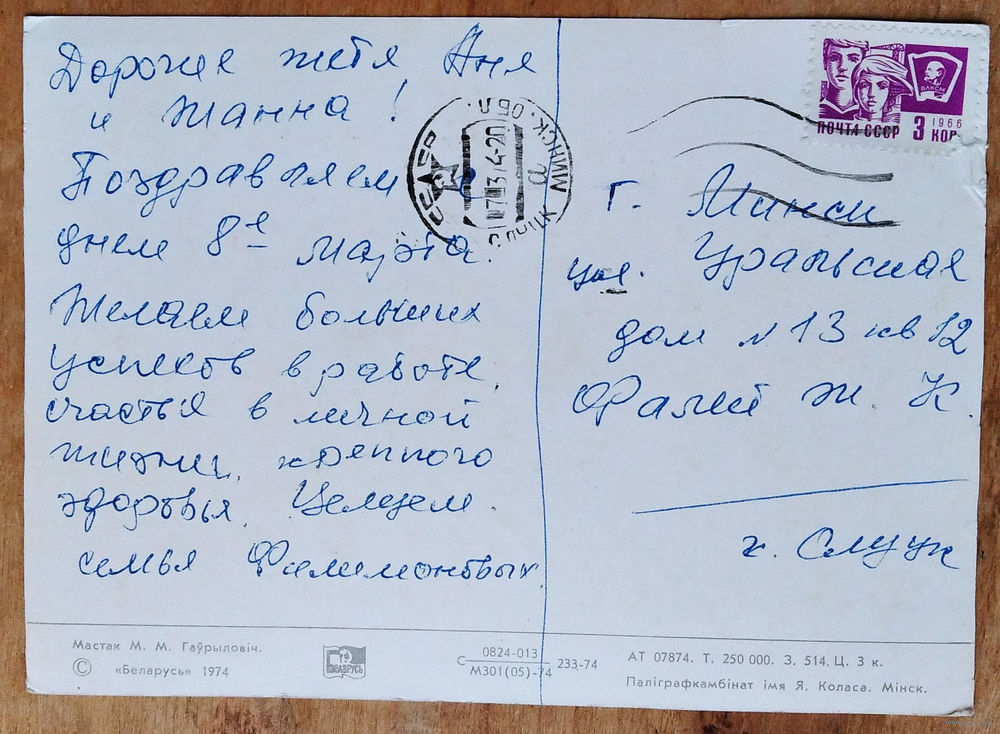 Дорогие тётя Аня
и Жанна!
Поздравляем с
днем 8е марта.
Желаем больших
успехов в работе,
счастья в личной
жизни, крепкого
здоровья. Целуем.
семья Филимоновых
ПОЧТА СССР 3 КОП
1966
ВЛКСМ
МИНСК. ОБЛ.
СЛУЦК
г. Минск
ул. Уральская
дом N 13 кв 12
Фалей Ж. К.
г. Слуцк
Мастак М. М. Гаўрыловіч.
© «Беларусь» 1974
БЕЛАРУСЬ
С 0824-013 / М301(05)-74 233-74
АТ 07874. Т. 250 000. З. 514. Ц. 3 к.
Паліграфкамбінат імя Я. Коласа. Мінск.